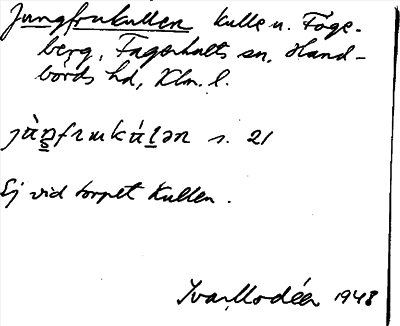 Jungfrukullen kulle u. Fåge-
berg, Fagerhults sn, Hand-
börds hd, Klm. l.
s. 21
Ej vid torpet Kullen.
Ivar Modéer 1948